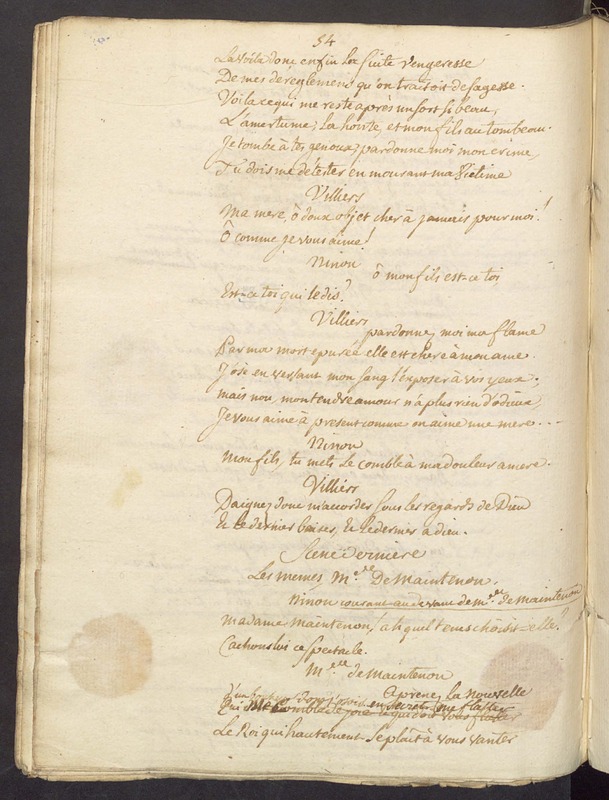 54
La voila donc enfin la suite vengeresse
De mes déreglemens qu'on traitoit de sagesse.
Voila ce qui me reste après un sort si beau,
L'amertume, la honte, et mon fils au tombeau.
Je tombe à tes genoux, pardonne moi mon crime,
Tu dois me détester en mourant ma victime
Villiers
Ma mere, ô doux objet cher à jamais pour moi!
Ô comme je vous aime!
Ninon
ô mon fils est=ce toi
Est=ce toi qui le dis?
Villiers
pardonne, moi ma flame
Par ma mort épurée elle est chere à mon ame.
J'ose en versant mon sang l'exposer à vos yeux;
mais non, mon tendre amour n'a plus rien d'odieux,
Je vous aime à present comme on aime une mere...
Ninon
Mon fils, tu mets le comble à ma douleur amere.
Villiers
Daignez donc m'accorder sous les regards de Dieu
Et le dernier baiser, et le dernier adieu.
Scene derniere
Les memes, M.de De Maintenon.
Ninon courant au devant de M.de de Maintenon
Madame Maintenon! ah quel tems choisit=elle?
Cachons lui ce spectacle.
M.de de Maintenon
Aprenez la nouvelle
en secret
Qui comble de joie et qui doit vous flater
Le Roi qui hautement se plaît à vous vanter